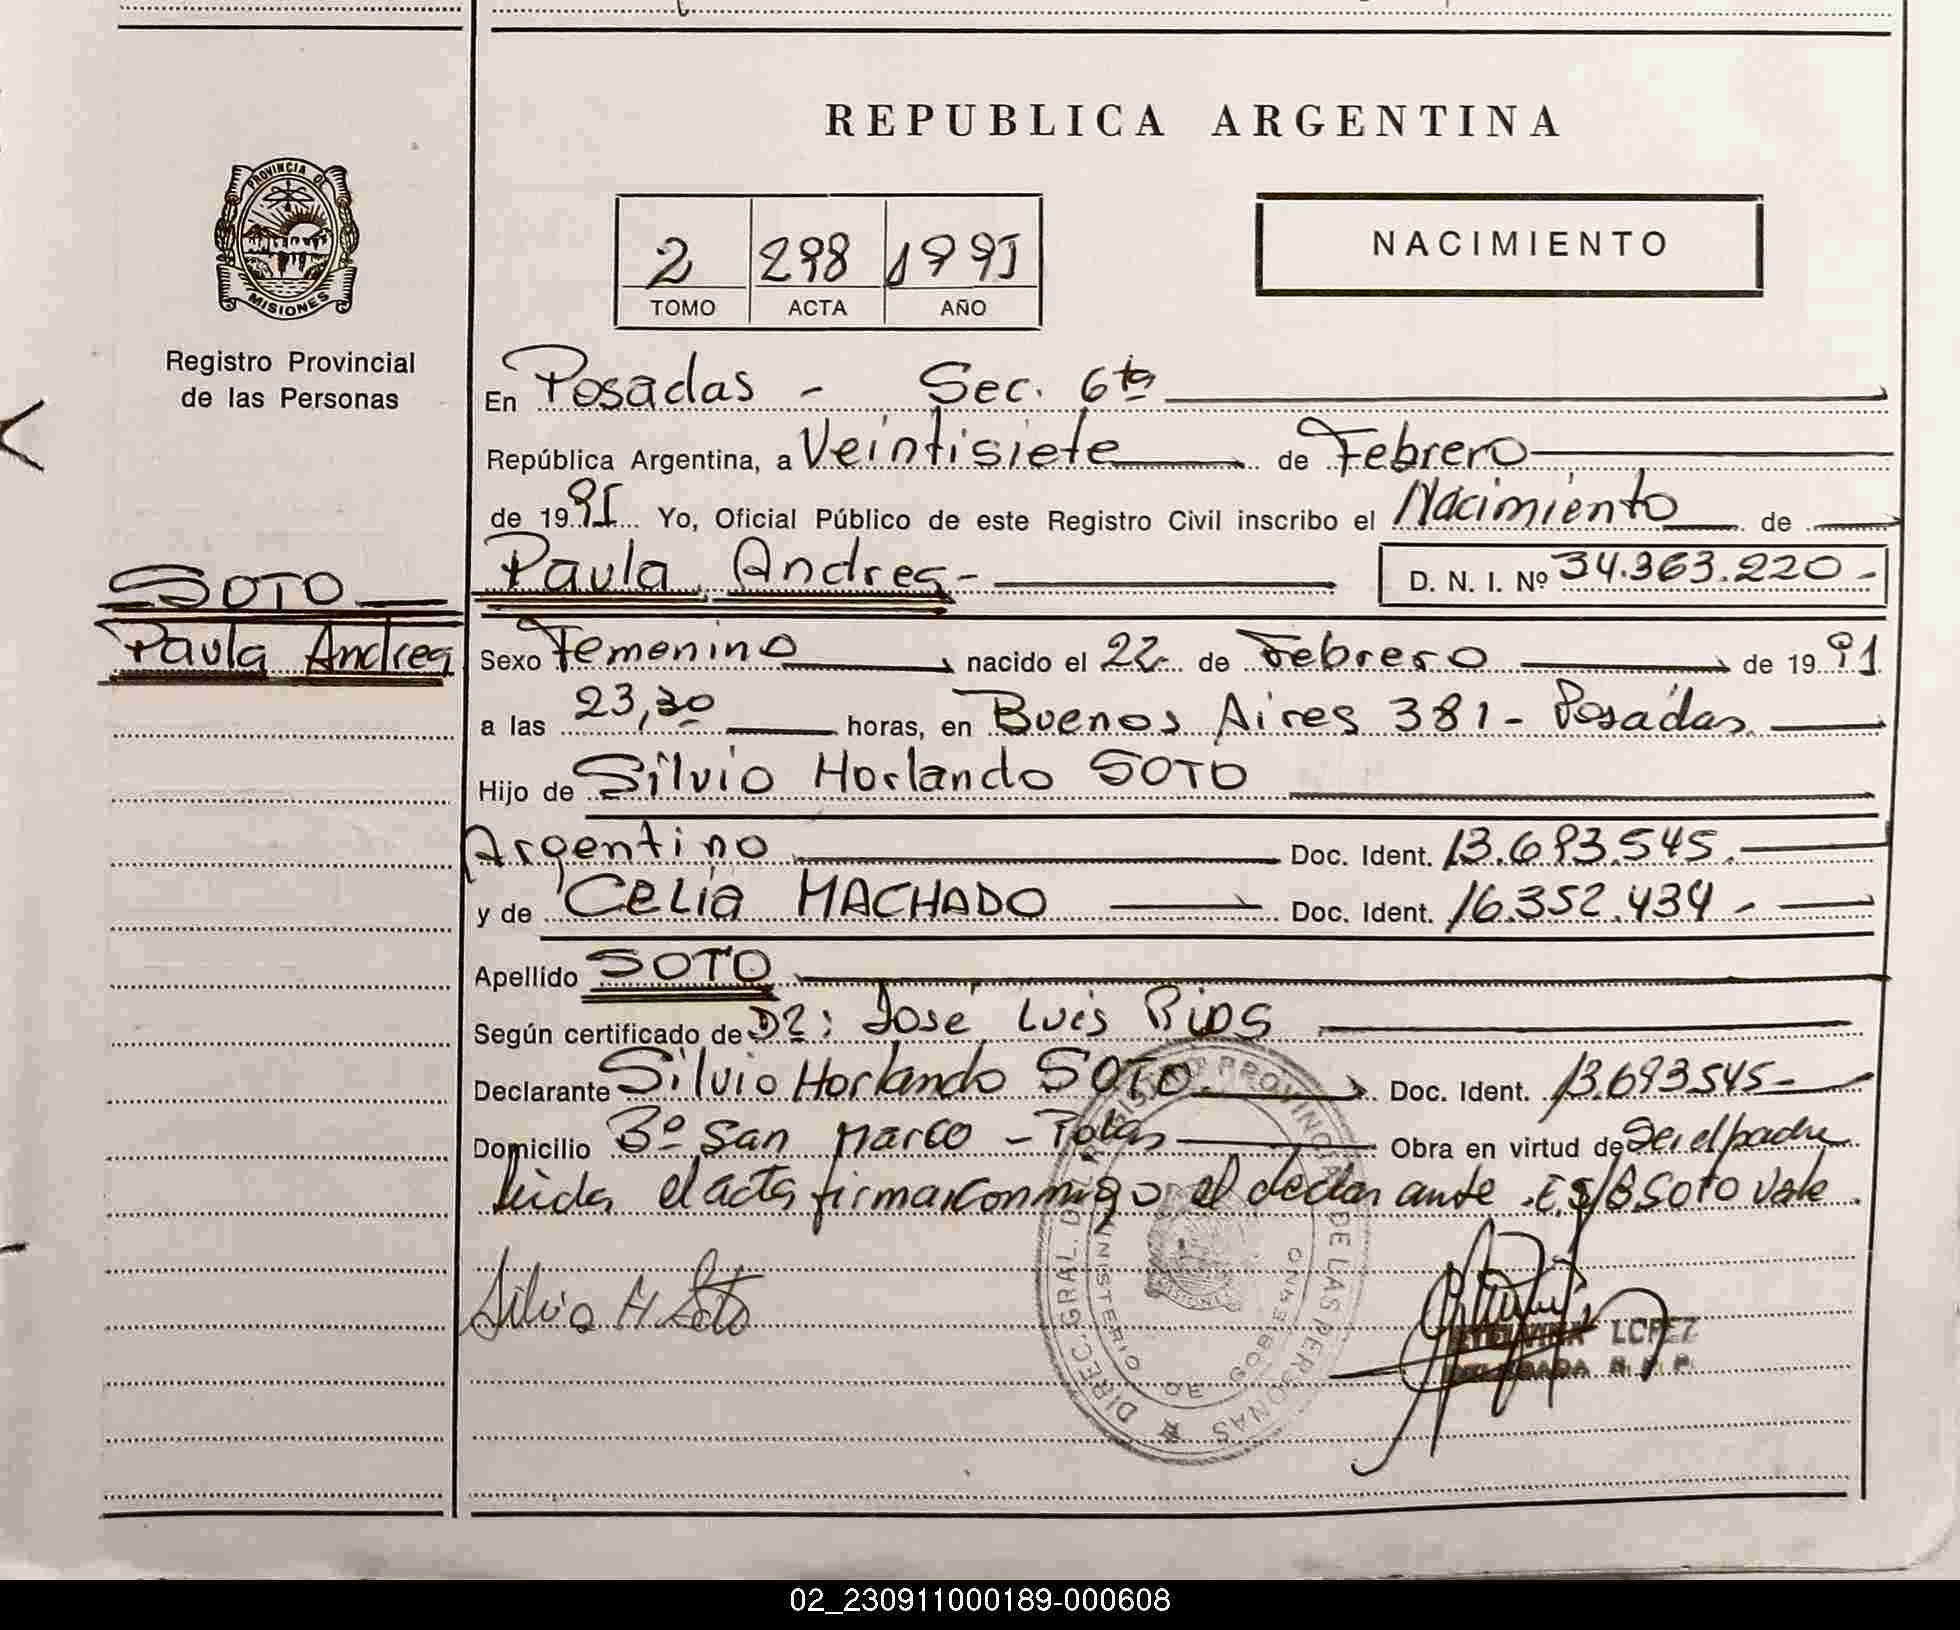 REPUBLICA ARGENTINA
PROVINCIA DE
MISIONES
Registro Provincial
de las Personas
2 298 1991
TOMO ACTA AÑO
NACIMIENTO
En Posadas - Sec. 6ta
República Argentina, a Veintisiete de Febrero
de 1991 Yo, Oficial Público de este Registro Civil inscribo el Nacimiento de
SOTO
Paula Andrea
Paula Andrea - D. N. I. Nº 34.363.220-
Sexo Femenino nacido el 22 de Febrero de 1991
a las 23,30 horas, en Buenos Aires 381- Posadas
Hijo de Silvio Horlando SOTO
Argentino Doc. Ident. 13.693.545.
y de CELia MACHADO Doc. Ident. 16.352.434-
Apellido SOTO
Según certificado de Dr: José Luis Rios
Declarante Silvio Horlando SOTO Doc. Ident. 13.693.545-
Domicilio Bº San Marco - Obra en virtud de Ser el padre
leida el acta firma conmigo el declarante. E S/B Soto Vale
Silvio H Soto
LOPEZ
DELEGADA R. P. P.
DIREC. GRAL. DEL REGISTRO PROVINCIAL DE LAS PERSONAS
MINISTERIO DE GOBIERNO
02_230911000189-000608